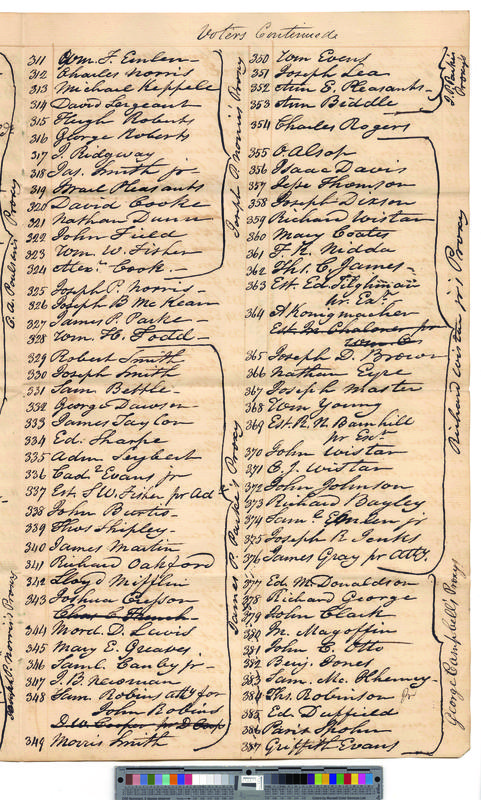 Voters Continued
311 Wm. F. Emlen
312 Charles Norris
313 Michael Keppele
314 David Sergeant
315 Hugh Roberts
316 George Roberts
317 J. Ridgway
318 Jas. Smith jr
319 Israel Pleasants
320 David Cooke
321 Nathan Dunn
322 John Field
323 Wm. W. Fisher
324 Cook
325 Joseph P. Norris
326 Joseph B McKean
327 James P. Parke
328 Wm. H. Todd
329 Robert Smith
330 Joseph Smith
331 Saml. Bettle
332 George Dawson
333 James Taylor
334 Ed. Sharpe
335 Adm Seybert
336 Cadr Evans jr
337 Est. S W. Fisher pr Ad
338 John Burtis
339 Thos Shipley
340 James Martin
341 Richard Oakford
342 Lloyd Mifflin
343 Joshua Cresson
Chas C French
344 Mord. D. Lewis
345 Mary E. Greaves
346 Saml. Canby jr
347 J. B. Newman
348 Sam. Robins atty for
John Robins
D. W. Coxe pr D Coxe
349 Morris Smith
C. A. Poulson's Proxy
Joseph P. Norris Proxy
Joseph P. Norris Proxy
James P. Parke's Proxy
350 Wm Evens
351 Joseph Lea
352 Ann E. Pleasants
353 Ann Biddle
354 Charles Rogers
355 O. Alsop
356 Isaac Davis
357 Thomson
358 Joseph Dixson
359 Richard Wistar
360 Mary Coates
361 F. K. Nidda
362 Ths. C. James
363 Est Ed Tilghman
pr Ext
364 A Konigmacher
Est M Chaloner pr
365 Joseph D. Brown
366 Nathan Eyre
367 Joseph Master
368 Wm Young
369 Est R. N. Barnhill
pr Ext
370 John Wistar
371 C. J. Wistar
372 John Johnson
373 Richard Bayley
374 Saml. Emlen jr
375 Joseph R Jenks
376 James Gray pr atty.
377 Ed. McDonaldson
378 Richard George
379 John Clark
380 M. Magoffin
381 John C. Otto
382 Benj. Jones
383 Sam. Mc. Phenny
384 Ths. Robinson
385 Ed Duffield
386 Paris Spohn
387 Griffith Evans
J. P. Parke Proxy
Richard Wistar jr's Proxy
George Campbells Proxy